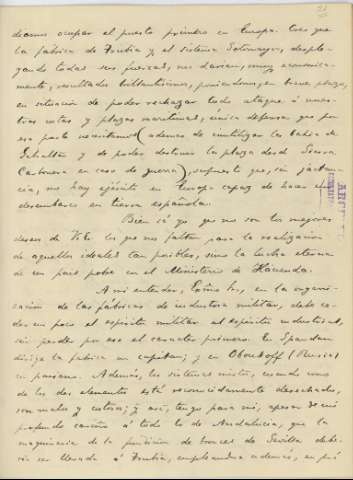 deamos ocupar el puesto primero en Europa. Creo que
la fábrica de Trubia y el sistema Sotomayor, desple-
gando todas sus fuerzas, nos darían, muy economica-
mente, resultados brillantisimos, poniendonos, en breve plazo,
en situación de poder rechazar todo ataque á nues-
tras costas y plazas maritimas, única defensa que por
esa parte necesitamos (ademas de inutilizar la bahia de
Gibraltar y de poder destruir la plaza desde Sierra
Carbonera en caso de guerra), supuesto que, sin jactan-
cia, no hay ejército en Europa capaz de hacer un
desembarco en tierra española.
Bien sé yo que no son los mejores
deseos de V. E. los que nos faltan para la realización
de aquellos ideales tan posibles, sino la lucha eterna
de un país pobre en el Ministerio de Hacienda.
A mi entender, Exmo Sr., en la organi-
zación de las fábricas de industria militar, debe ce-
der un poco el espíritu militar al espíritu industrial,
sin perder por eso el carácter primero. En Spandau
dirige la fabrica un capitan; y en Obouhoff (Rusia)
un paisano. Además, los sistemas mixtos, cuando uno
de los dos elementos está reconocidamente desechado,
son malos y costosos; y así, tengo para mí, apesar de mi
profundo cariño á todo lo de Andalucía, que la
maquinaria de la fundición de bronces de Sevilla debe-
ría ser llevada á Trubia, empleandose además, en